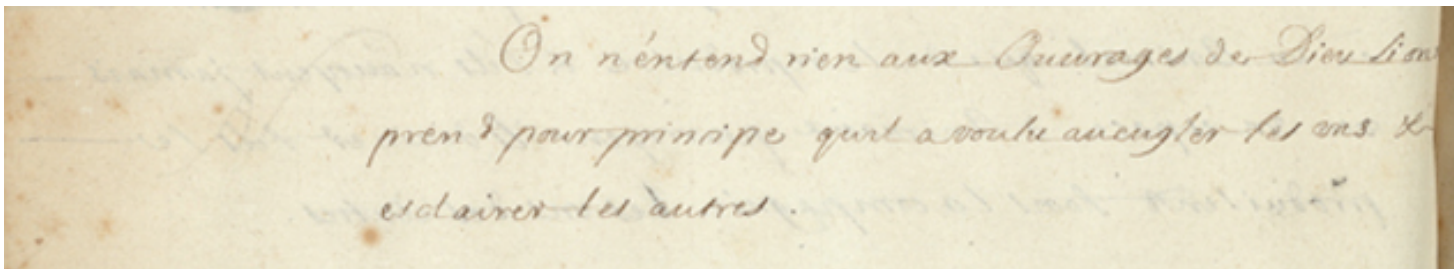 On n'éntend rien aux Ouurages de Dieu si on
prend pour principe qu'il a voulu aueugler les vns &
esclairer les autres.